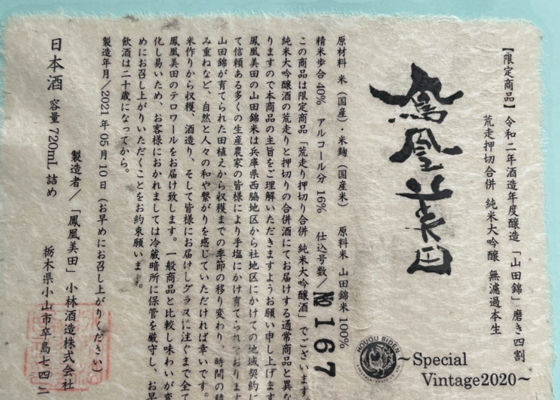 【限定商品】令和二年酒造年度醸造「山田錦」磨き四割
荒走押切合併 純米大吟醸 無濾過本生
鳳凰美田
HOUOU BIDEN
~Special
Vintage2020~
原材料 米(国産)・米麹(国産米) 原料米 山田錦米100%
精米歩合 40% アルコール分 16% 仕込号数/№167
この商品は限定商品「荒走り押切り合併 純米大吟醸酒」でございます。
純米大吟醸酒の荒走りと押切りの合併酒にてお届けする通常商品と異な
りますので本商品の主旨をご理解いただきますようお願い申し上げます
鳳凰美田の山田錦米は兵庫県西脇地区から社地区にかけての地域契約に
て信頼ある多くの生産農家の皆様により手塩にかけ育てられております
山田錦が育てられた田植えから収穫までの季節の移り変わり、時間の積
み重ねなど、自然と人々の和や繋がりを感じていただければ幸いです。
米作りから収穫、酒造り、そして皆様にお届けしグラスに注ぐまで全て
鳳凰美田のテロワールをお届け致します。一般商品と比較し味わいが変
化し易いため、お客様におかれましては冷蔵暗所に保管を厳守し、お早
めにお召し上がりいただくことをお約束願います。
飲酒は二十歳になってから。
製造年月/2021年05月10日(お早めにお召し上がりください)
製造者/「鳳凰美田」小林酒造株式会社
栃木県小山市卒島七四二
日本酒 容量720ml詰め